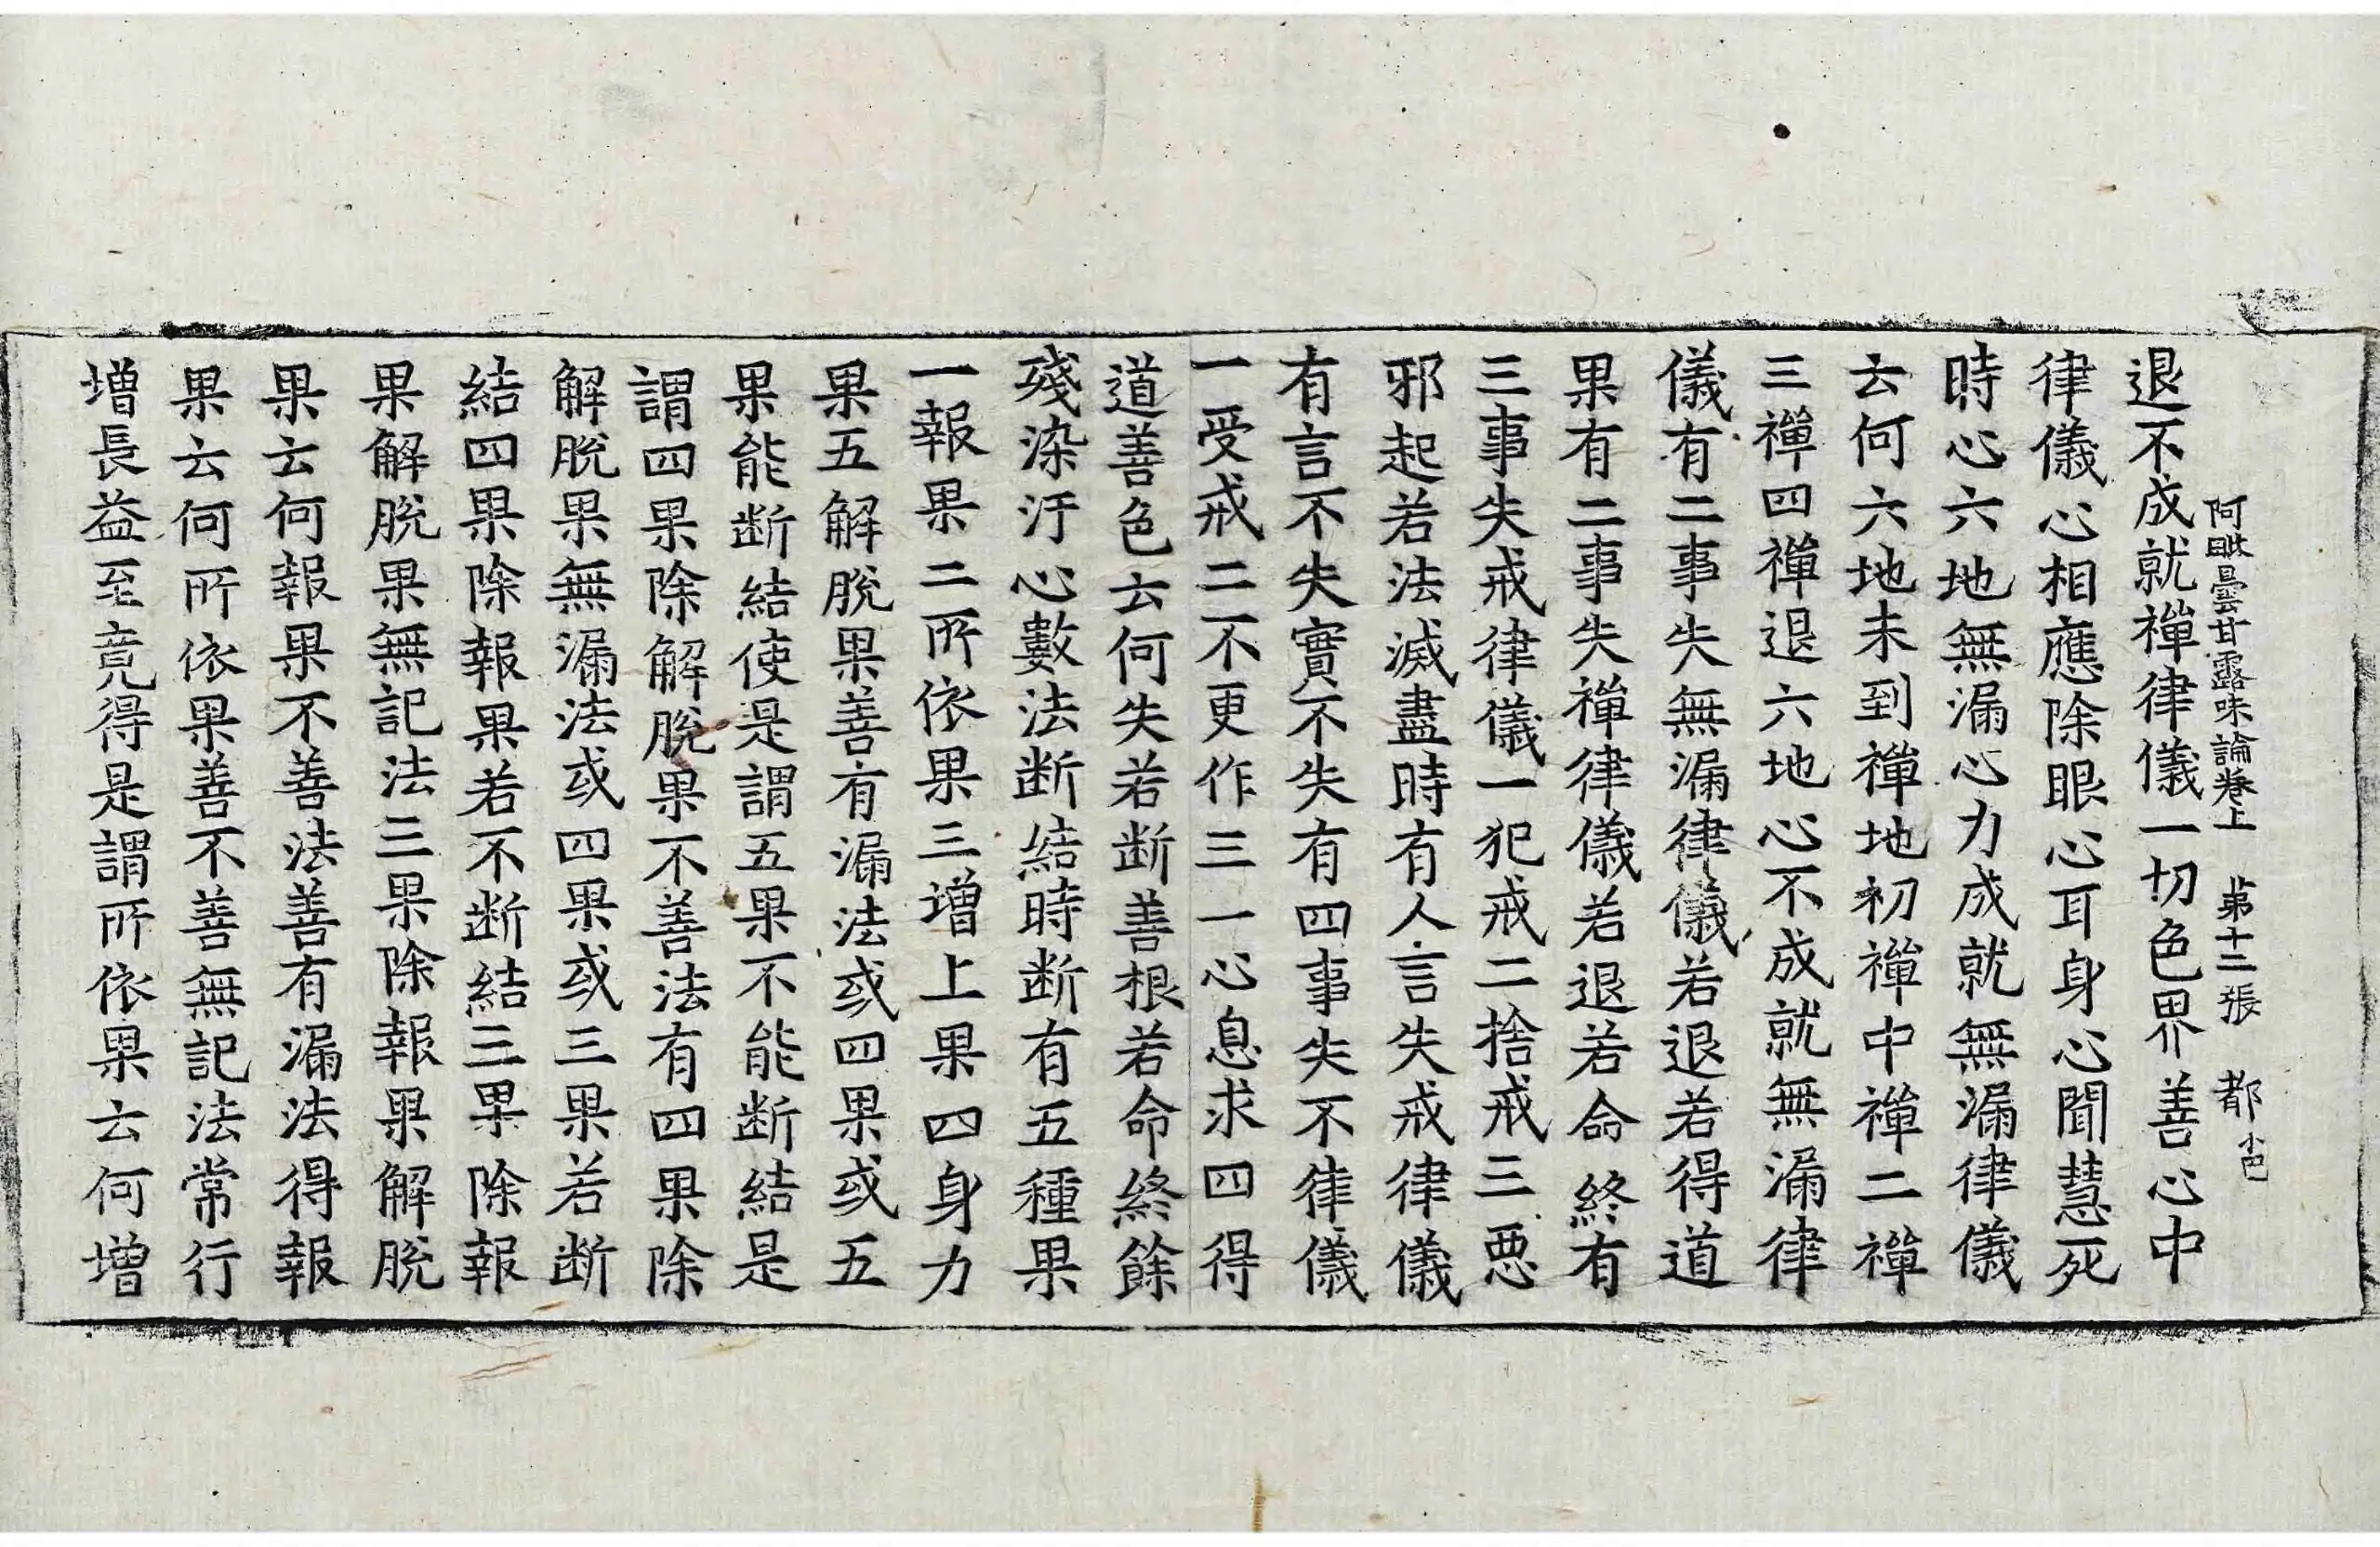 阿毗曇甘露味論卷上 苐十二張 都
退不成就禪律儀一切色界善心中
律儀心相應除眼心耳身心聞慧死
時心六地無漏心力成就無漏律儀
云何六地未到禪地初禪中禪二禪
三禪四禪退六地心不成就無漏律
儀有二事失無漏律儀若退若得道
果有二事失禪律儀若退若命終有
三事失戒律儀一犯戒二捨戒三惡
邪起若法滅盡時有人言失戒律儀
有言不失實不失有四事失不律儀
一受戒二不更作三一心息求四得
道善色云何失若断善根若命終餘
殘染汙心數法断結時断有五種果
一報果二所依果三增上果四身力
果五解脫果善有漏法或四果或五
果能断結使是謂五果不能断結是
謂四果除解脫果不善法有四果除
解脫果無漏法或四果或三果若断
結四果除報果若不断結三果除報
果解脫果無記法三果除報果解脫
果云何報果不善法善有漏法得報
果云何所依果善不善無記法常行
增長益至竟得是謂所依果云何增